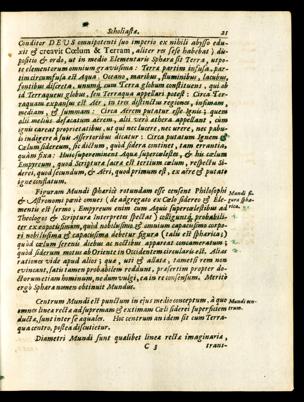 Scholiastæ. 21
Conditor DEUS omnipotenti suo imperio ex nihili abysso edu-
xit & creavit Cœlum & Terram, aliter res sese habebat) du-
positio & ordo, ut in medio Elementaris Sphæra sit Terra, utpo-
te elementorum omnium gravissima: Terra partim infusa, par-
tim circumfusa est Aqua. Oceano, maribus, fluminibus, lacubus,
fontibus discreta, unum cum Terra globum constituens, qui ab
id Terraqueus globus, seu Terraqua appellari potest: Circa Ter-
raquam expansus est Aër, in tres distinctus regiones, infimam,
mediam, & summam: Circa Aërem putatur esse Ignis; quem
alii melius defæcatum aërem, alii verò æthera appellant, cum
igni careat proprietatibus, ut qui nec lucere, nec urere, nec pabu-
li indigere à suis Assertoribus dicatur: Circa putatum Ignem est
Cœlum sidereum, sic dictum, quòd sidera contineat, tam errantia,
quàm fixa: Huic supereminent Aqua supercœlestes, & his cœlum
Empyreum, quod Scriptura sacra est tertium cœlum, respectu si-
derei, quod secundum, & Aërei, quod primum est, ex aëre & putato
igne conflatum.
Figuram Mundi sphæricè rotundam esse censent Philosophi
& Astronomi pænè omnes (de aggregato ex Cœlo sidereo & Ele-
mentis est sermo. Empyreum enim cum Aquis supercœlestibus ad
Theologos & Scriptura Interpretes spectat) colliguntq́; probabili-
ter ex eo potissimùm, quòd nobilissimo, & omnium capacissimo corpo-
ri nobilissima & capacissima debetur figura (talis est sphærica)
quòd cœlum serenis diebus ac noctibus appareat concameratum;
quòd siderum motus ab Oriente in Occidentem circularis est. Aliæ
rationes vide apud alios; quæ, uti & allatæ, tametsi rem non
evincant, satis tamen probabilem reddunt, præsertim propter do-
ctorum etiam hominum, ne dum vulgi, ea in re consensum. Meritò
ergò Sphæra nomen obtinuit Mundus.
Mundi fi-
gura sphæ-
rica.
Centrum Mundi est punctum in ejus medio conceptum, à quo
omnes linea recta ad supremam & extimam Cœli siderei superficiem
ducta, sunt inter se æquales. Hoc centrum an idem sit cum Terra-
qua centro, postea discutietur.
Mundi cen-
trum.
Diametri Mundi sunt qualibet linea recta imaginaria,
C 3 trans-